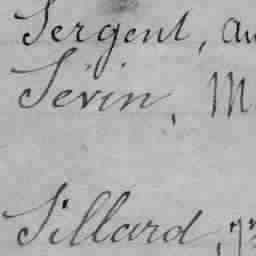 Sergent, au
Sévin, M
Sillard,